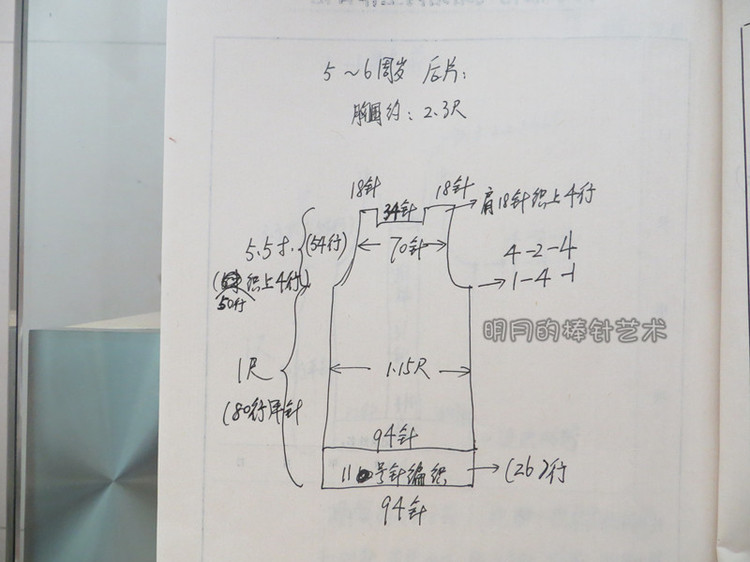 5～6周岁 后片:
胸围约: 2.3尺
18针
34针
18针
肩18针织上4行
5.5寸
(54行)
70针
4-2-4
1-4-1
织上4行)
50行
明月的棒针艺术
1尺
1.15尺
(80行平针
94针
11号针编织
(26)行
94针